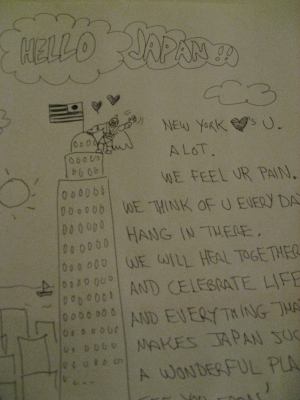 HELLO JAPAN!!!
NEW YORK ♥'S U.
A LOT.
WE FEEL UR PAIN.
WE THINK OF U EVERY DA
HANG IN THERE.
WE WILL HEAL TOGETHER
AND CELEBRATE LIFE
AND EVERYTHING THA
MAKES JAPAN SUC
A WONDERFUL PLA
SEE YOU SOON!